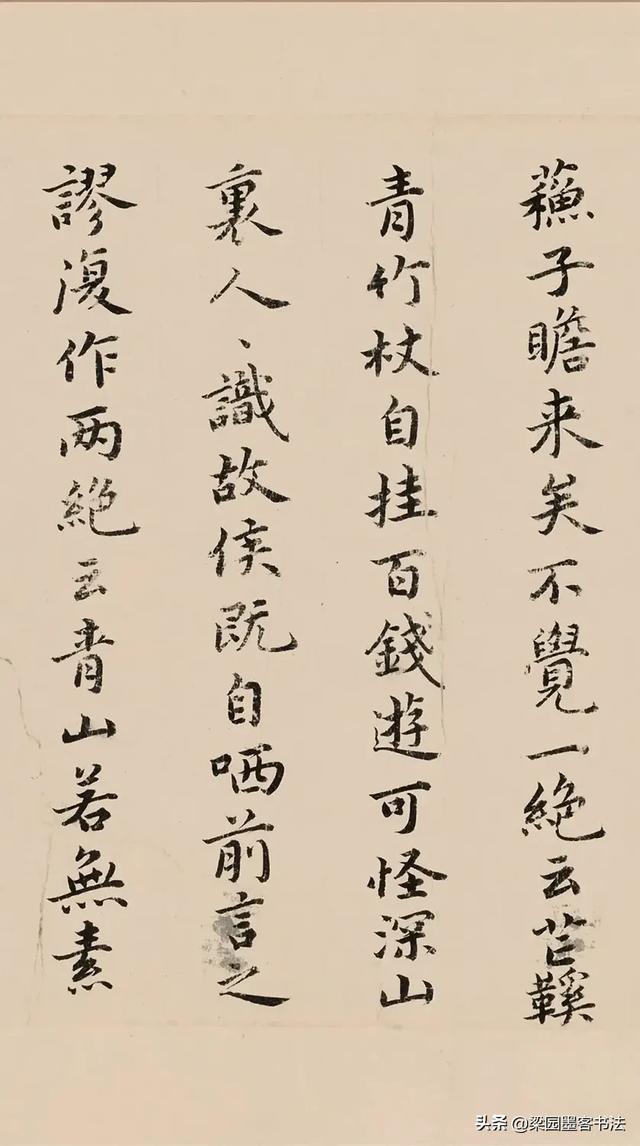 蘓子瞻来矣不覺一絶云芒鞵
青竹杖自挂百錢遊可怪深山
裏人、識故侯既自哂前言之
謬復作两絶云青山若無素
头条 @梁园墨客书法